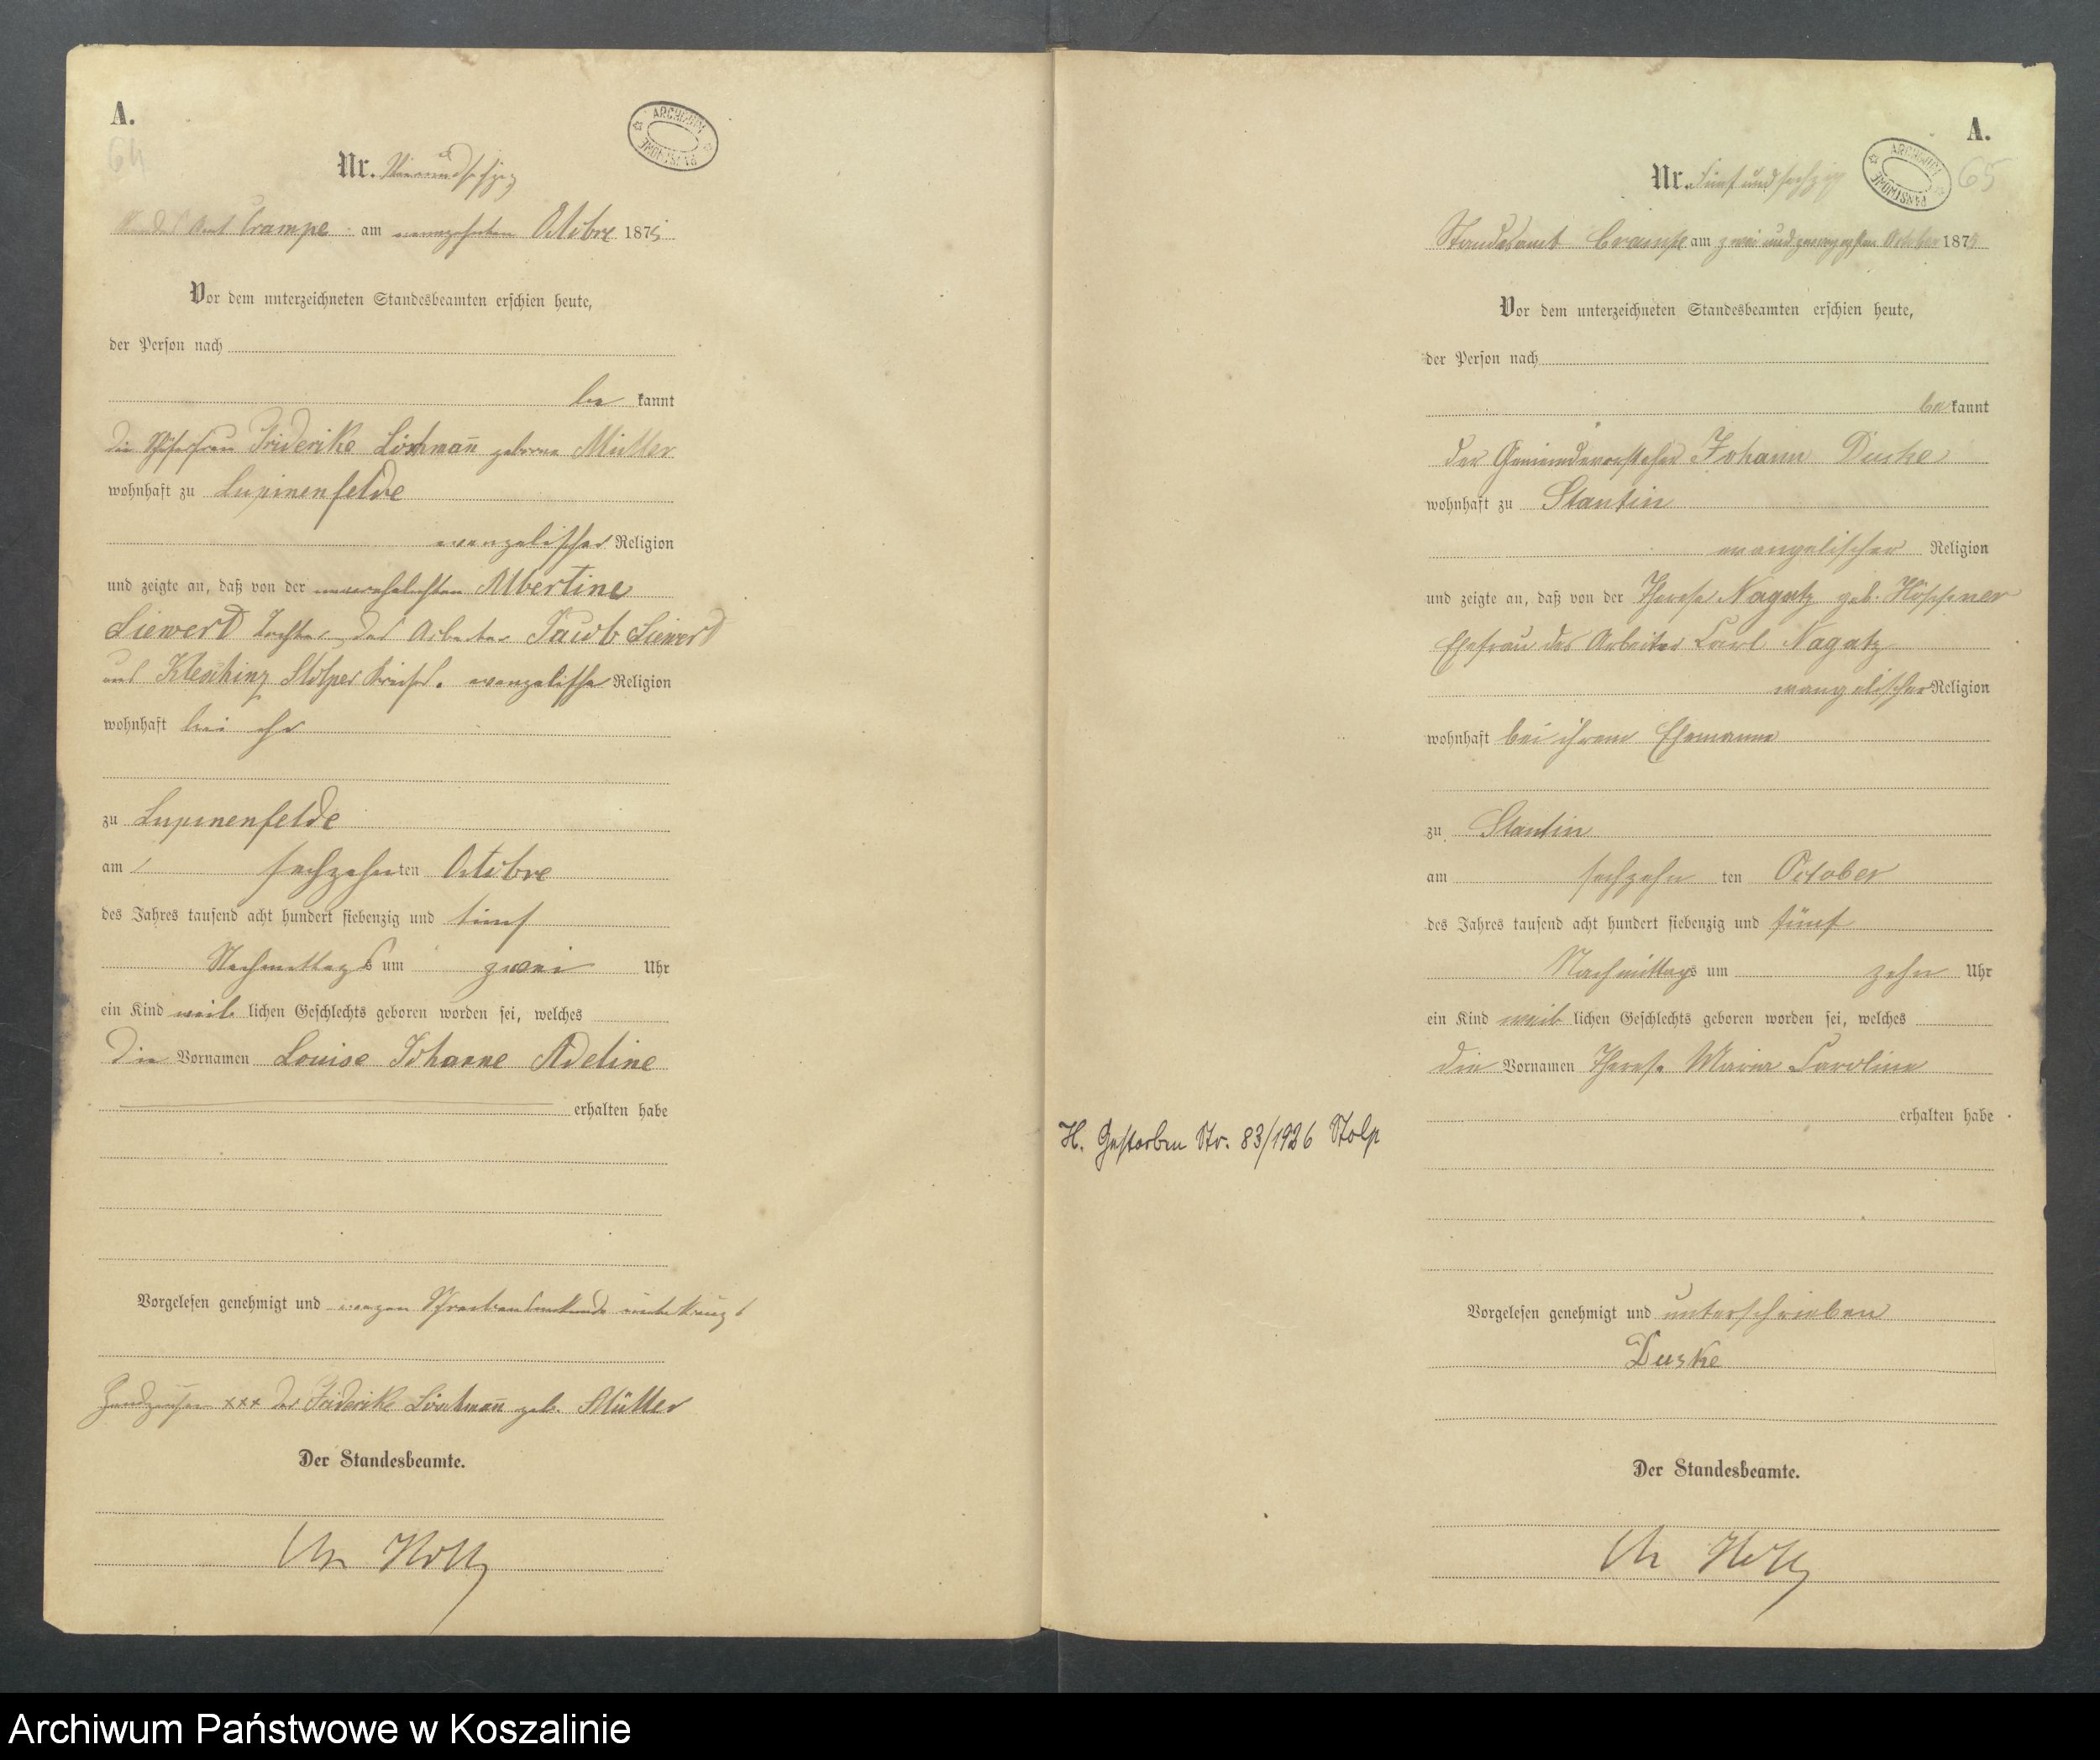 A.
64
ARCHIWUM PAŃSTWOWE
Nr. Vierundsechzig
Standes Amt Crampe am neunzehnten Octobre 1875
Vor dem unterzeichneten Standesbeamten erschien heute,
der Person nach
be kannt
die Friderike geborne Müller
wohnhaft zu Lupinenfelde
evangelischer Religion
und zeigte an, daß von der unverehelichten Albertine
Siewert Tochter des Arbeiter Jacob Siewert
Stolper Kreises. evangelische Religion
wohnhaft bei ihr
zu Lupinenfelde
am sechzehnten Octobre
des Jahres tausend acht hundert siebenzig und fünf
Nachmittags um zwei Uhr
ein Kind weib lichen Geschlechts geboren worden sei, welches
die Vornamen Louise Johanne Adeline
erhalten habe
Vorgelesen genehmigt und wegen
Handzeichen xxx der Friderike geb. Müller
Der Standesbeamte.
A.
65
ARCHIWUM PAŃSTWOWE
Nr. Fünf und sechzig
Standesamt Crampe am zwei und zwanzigsten October 1875
Vor dem unterzeichneten Standesbeamten erschien heute,
der Person nach
be kannt
der Gemeindevorsteher Johann Duske
wohnhaft zu Stantin
evangelischer Religion
und zeigte an, daß von der Therese Nagatz geb. Höppner
Ehefrau des Arbeiter Carl Nagatz
evangelischer Religion
wohnhaft bei ihrem Ehemanne
zu Stantin
am sechzehn ten October
des Jahres tausend acht hundert siebenzig und fünf
Nachmittags um zehn Uhr
ein Kind weib lichen Geschlechts geboren worden sei, welches
die Vornamen Therese Maria Caroline
erhalten habe
H. Gestorben Nr. 83/1926 Stolp
Vorgelesen genehmigt und unterschrieben
Duske
Der Standesbeamte.
Archiwum Państwowe w Koszalinie